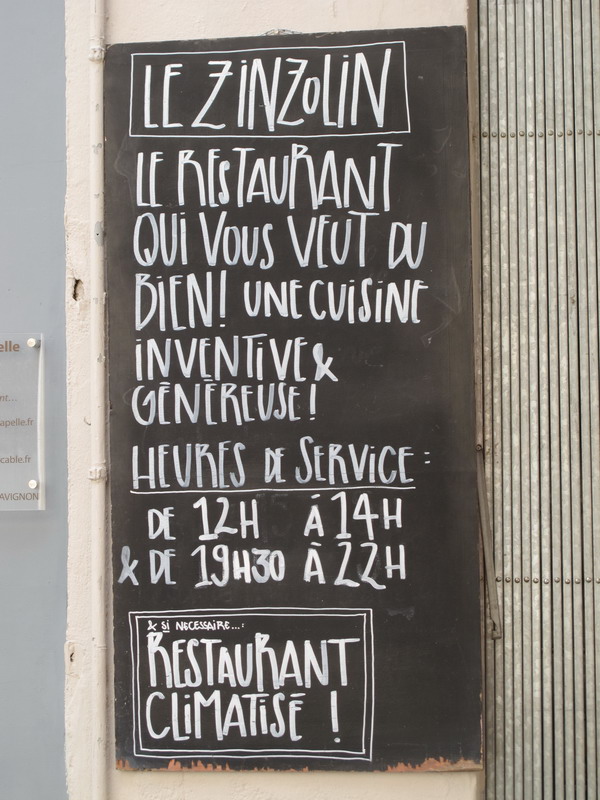 LE ZiNZoLiN
LE RESTAURANT
QUi VOUS VEUT DU
BiEN! UNE CUISINE
iNVENTiVE &
GÉNÉREUSE!
HEURES DE SERViCE :
DE 12H À 14H
& DE 19H30 À 22H
& Si NECESSAIRE...:
RESTAURANT
CLiMATiSÉ !
elle
nt...
apelle.fr
cable.fr
AVIGNON